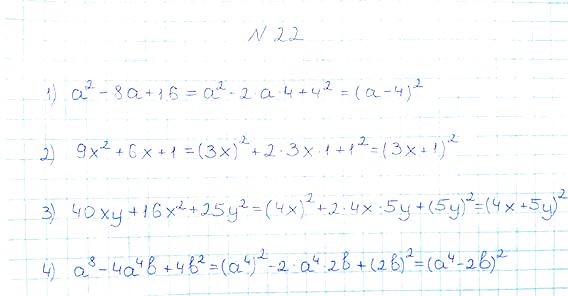 N 22
1) a² - 8a + 16 = a² - 2·a·4 + 4² = (a - 4)²
2) 9x² + 6x + 1 = (3x)² + 2·3x·1 + 1² = (3x + 1)²
3) 40xy + 16x² + 25y² = (4x)² + 2·4x·5y + (5y)² = (4x + 5y)²
4) a⁸ - 4a⁴b + 4b² = (a⁴)² - 2·a⁴·2b + (2b)² = (a⁴ - 2b)²